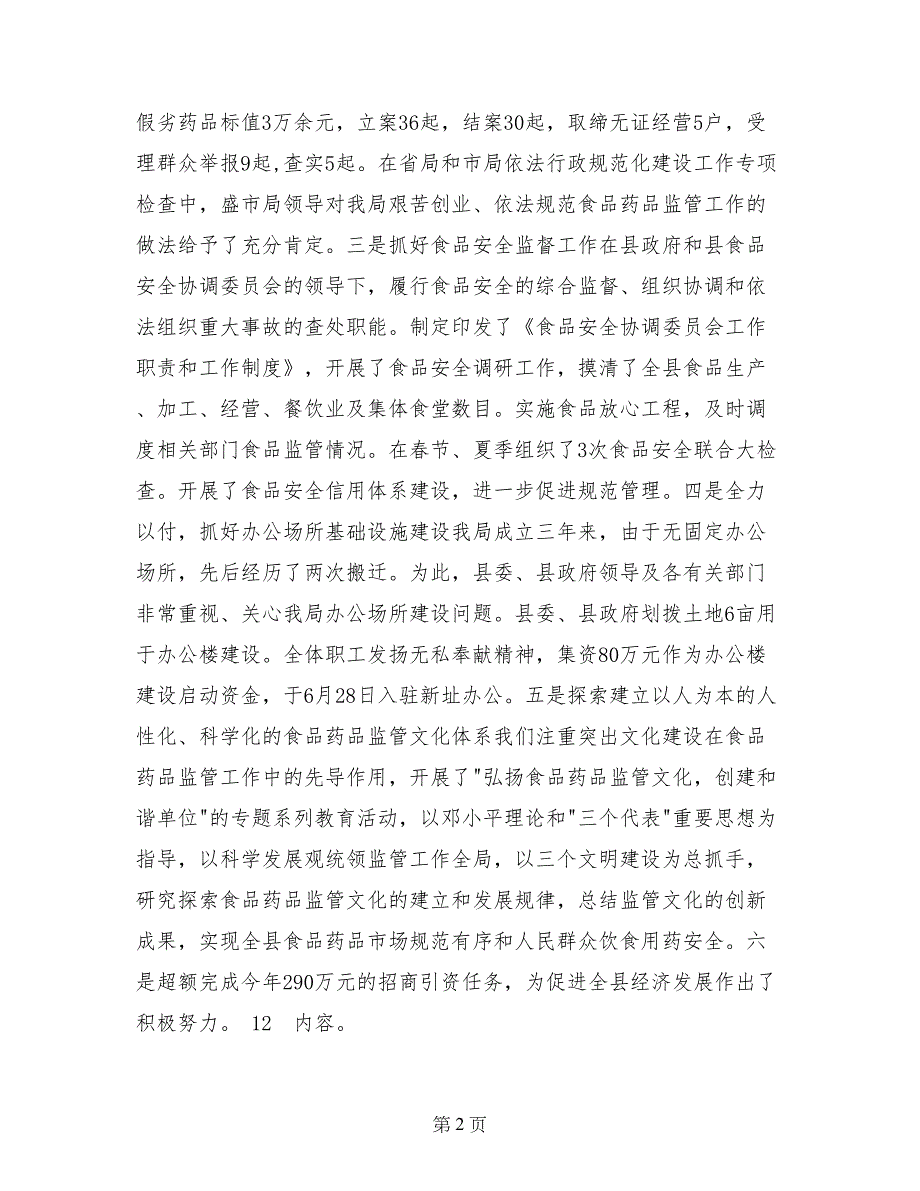 假劣药品标值3万余元，立案36起，结案30起，取缔无证经营5户，受
理群众举报9起,查实5起。在省局和市局依法行政规范化建设工作专项
检查中，盛市局领导对我局艰苦创业、依法规范食品药品监管工作的
做法给予了充分肯定。三是抓好食品安全监督工作在县政府和县食品
安全协调委员会的领导下，履行食品安全的综合监督、组织协调和依
法组织重大事故的查处职能。制定印发了《食品安全协调委员会工作
职责和工作制度》，开展了食品安全调研工作，摸清了全县食品生产
、加工、经营、餐饮业及集体食堂数目。实施食品放心工程，及时调
度相关部门食品监管情况。在春节、夏季组织了3次食品安全联合大检
查。开展了食品安全信用体系建设，进一步促进规范管理。四是全力
以付，抓好办公场所基础设施建设我局成立三年来，由于无固定办公
场所，先后经历了两次搬迁。为此，县委、县政府领导及各有关部门
非常重视、关心我局办公场所建设问题。县委、县政府划拨土地6亩用
于办公楼建设。全体职工发扬无私奉献精神，集资80万元作为办公楼
建设启动资金，于6月28日入驻新址办公。五是探索建立以人为本的人
性化、科学化的食品药品监管文化体系我们注重突出文化建设在食品
药品监管工作中的先导作用，开展了"弘扬食品药品监管文化，创建和
谐单位"的专题系列教育活动，以邓小平理论和"三个代表"重要思想为
指导，以科学发展观统领监管工作全局，以三个文明建设为总抓手，
研究探索食品药品监管文化的建立和发展规律，总结监管文化的创新
成果，实现全县食品药品市场规范有序和人民群众饮食用药安全。六
是超额完成今年290万元的招商引资任务，为促进全县经济发展作出了
积极努力。 12  内容。
第 2 页